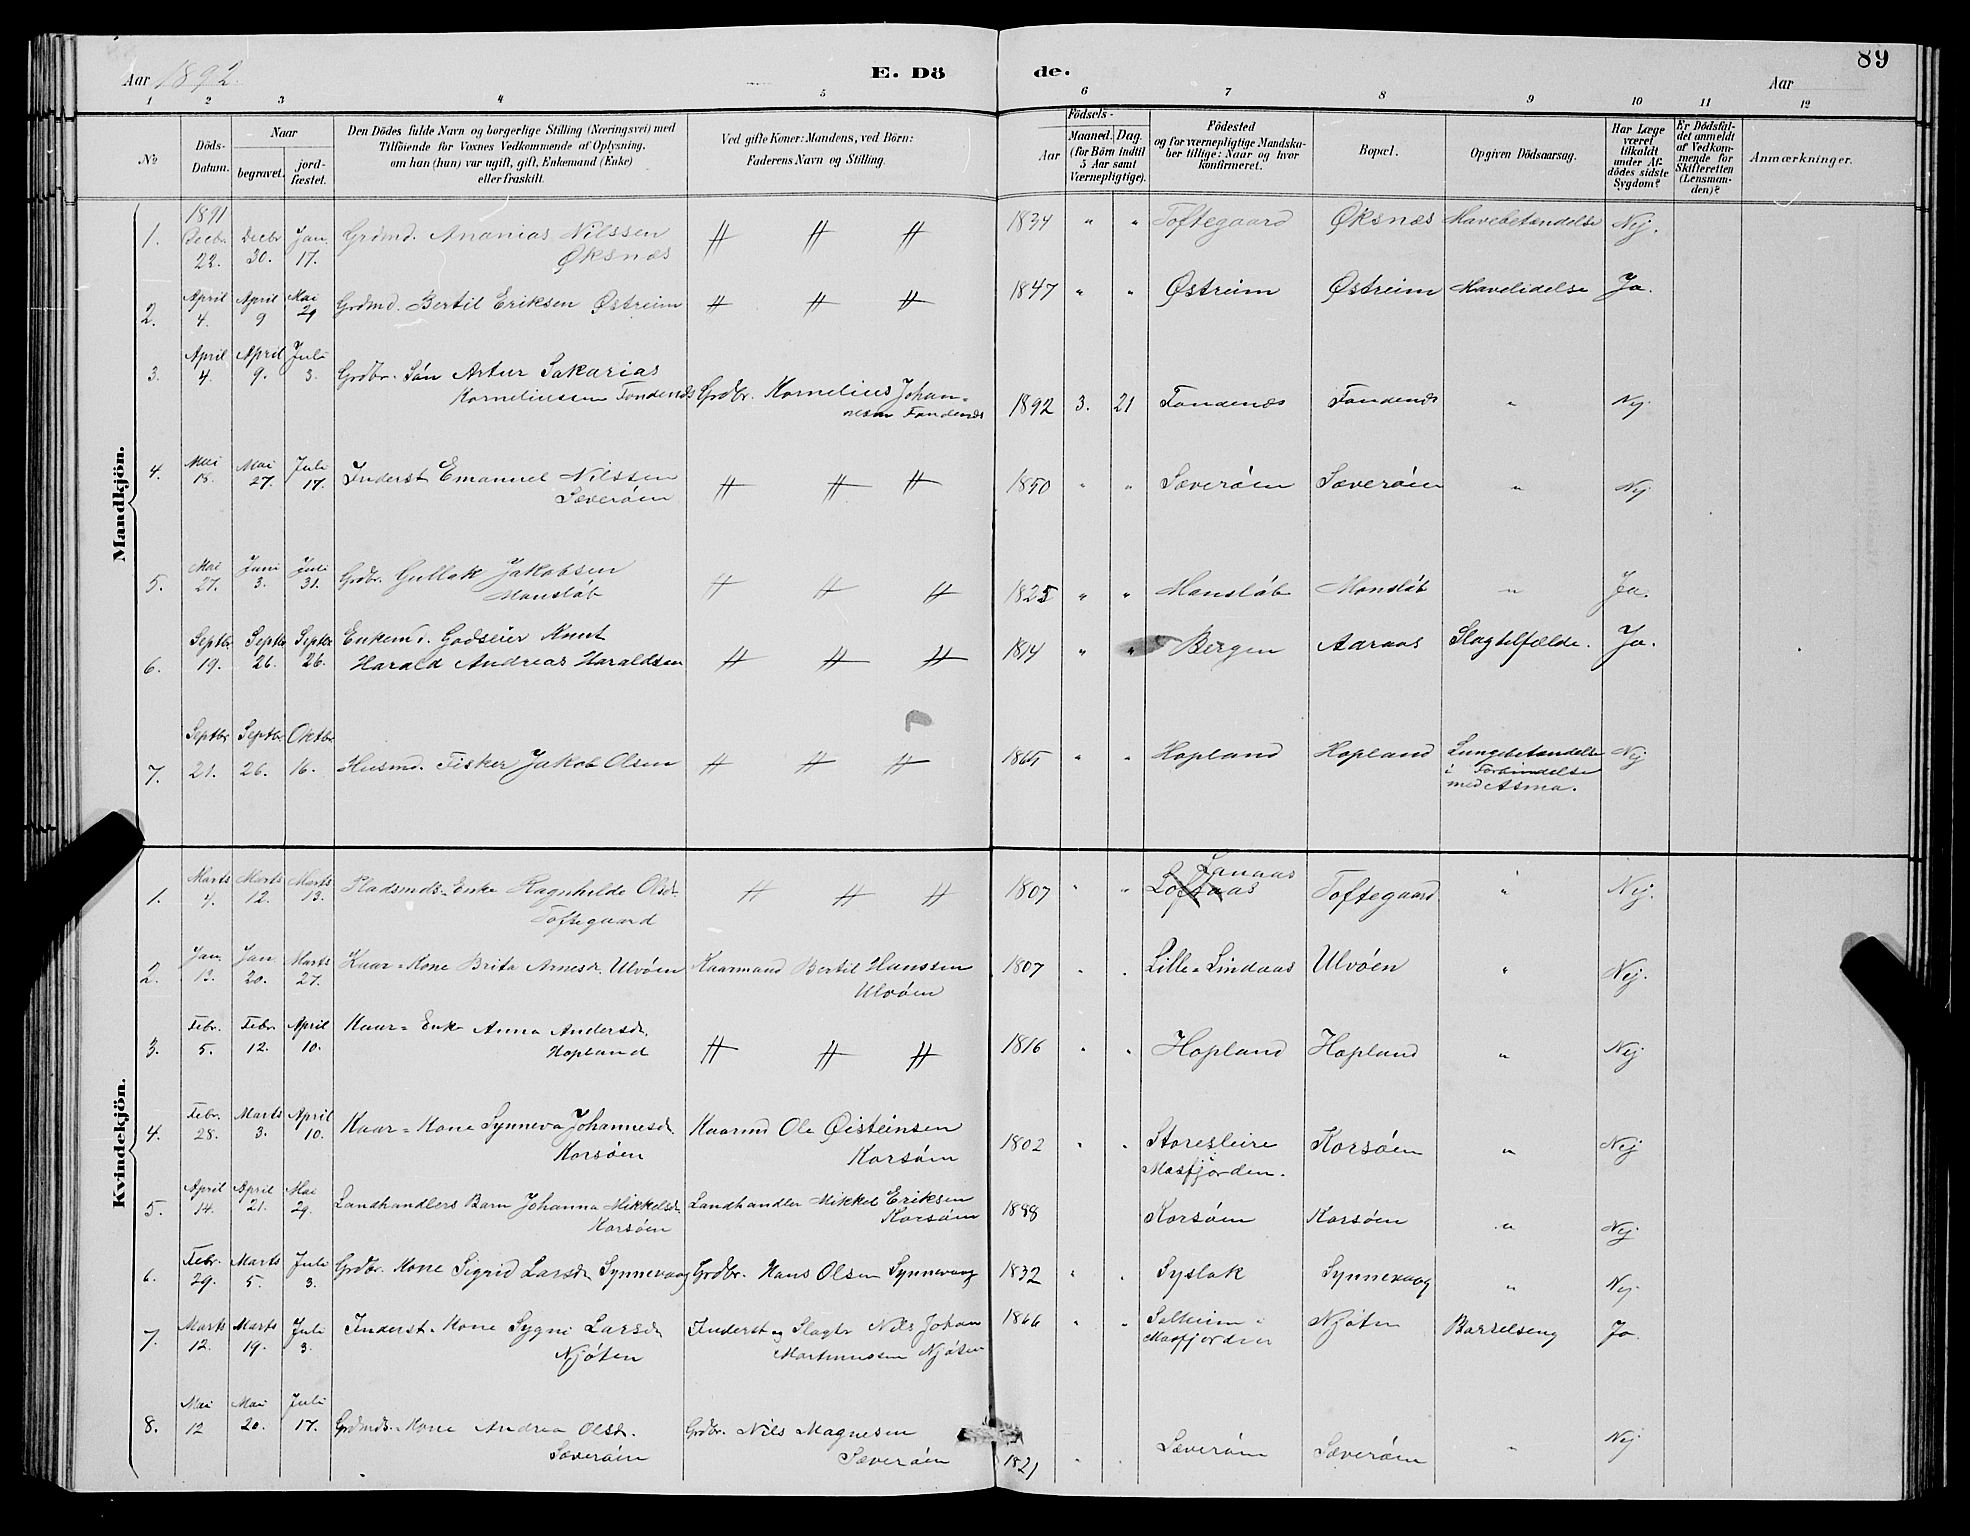 Aar 1892.
E. Dö
de.
Aar
89
1 2 3 4 5 6 7 8 9 10 11 12
No
Döds-Datum.
Naar
begravet.
jord-fæstet.
Den Dödes fulde Navn og borgerlige Stilling (Næringsvei) med
Tilföiende för Voxnes Vedkommende af Oplysning,
om han (hun) var ugift, gift, Enkemand (Enke)
eller fraskilt.
Ved gifte Koner: Mandens, ved Börn:
Faderens Navn og Stilling.
Födsels-
Aar
Maaned. Dag.
(for Börn indtil
5 Aar samt
Værnepligtige).
Födested
og for værnepligtige Mandska-
ber tillige: Naar og hvor
konfirmeret.
Bopæl.
Opgiven Dödsaarsag.
Har Læge
været
tilkaldt
under Af-
dödes sidste
Sygdom?
Er Dödsfal-
det anmeldt
af Vedkom-
mende for
Skifteretten
(Lensman-
den)?
Anmærkninger.
Mandkjön.
1. 1891 Decbr. 22. Decbr 30. Jan. 17. Grdmd. Ananias Nilssen Øksnæs 〃 〃 〃 1834 " " Toftegaard Øksnæs Mavebetændelse Nej.
2. April 4. April 9 Mai 29 Grdmd. Bertil Eriksen Østreim 〃 〃 〃 1847 " " Østreim Østreim Mavelidelse Ja.
3. April 4. April 9. Juli 3. Grdbr. Sön Artur Sakarias Korneliussen Fondenæs Grdbr. Kornelius Johan-nesen Fondenæs 1892 3. 21 Fondenæs Fondenæs " Nej.
4. Mai 18. Mai 27. Juli 17. Inderst Emanuel Nilssen Sæveröen 〃 〃 〃 1850 " " Sæveröen Sæveröen " Nej.
5. Mai 27. Juni 3. Juli 31. Grdbr. Gullak Jakobsen Monslöb 〃 〃 〃 1825 " " Monslöb Monslöb " Ja.
6. Septbr 19. Septbr 26. Septbr 26. Enkemd. Godseier Knut Harald Andreas Haraldsen 〃 〃 〃 1814 " " Bergen Aaraas Slagtilfælde. Ja.
7. Septbr 21. Septbr 26. Oktbr. 16. Husmd. Fisker Jakob Olsen 〃 〃 〃 1865 " " Hopland Hopland Lungebetændelse i Forbindelse med Asma. Nej
Kvindekjön.
1. Marts 4. Marts 12. Marts 13. Pladsmds. Enke Ragnhilde Olsd. Toftegaard 〃 〃 〃 1807 " " Lanaas Toftegaard " Nej.
2. Jan. 13. Jan. 20. Marts 27. Kaar-Kone Brita Arnesd. Ulvöen Kaarmand Bertil Hanssen Ulvöen 1807 " " Lille-Lindaas Ulvöen " Nej.
3. Febr. 5. Febr 12. April 10. Kaar-Enke Anna Andersd. Hopland 〃 〃 〃 1816 " " Hopland Hopland " Nej
4. Febr. 28. Marts 3. April 10. Kaar-Kone Synneva Johannesd. Korsöen Kaarmd Ole Øisteinsen Korsöen 1802 " " Storesleire Masfjorden. Korsöen " Nej
5. April 14. April 21. Mai 29. Landhandlers Barn Johanna Mikkelsd. Korsöen Landhandler Mikkel Eriksen Korsöen 1888 Korsöen Korsöen " Nej
6. Febr. 29. Marts 5. Juli 3. Grdbr. Kone Sigrid Larsd. Synnevaag Grdbr. Hans Olsen Synnevaag 1832 " " Syslak Synnevaag " Nej.
7. Marts 12. Marts 19. Juli 3. Inderst-Kone Sygni Larsd. Njöten Inderst og Slagter Nils Johan Martinussen Njöten 1866 " " Solheim i Masfjorden Njöten Barselseng Ja.
8. Mai 12 Mai 20. Juli 17. Grdmds. Kone Andrea Olsd. Sæveröen Grdbr. Nils Magnesen Sæveröen 1821 " Sæveröen Sæveröen " Nej